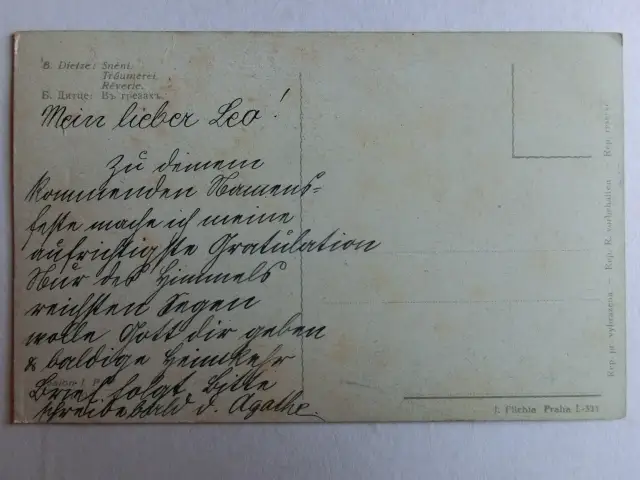 B. Dietze: Snění.
Träumerei.
Rêverie.
Б. Дитце: Въ грезахъ.
Mein lieber Leo!
Zu deinem
kommenden Namens=
feste mache ich meine
aufrichtigste Gratulation
Nur des Himmels
reichsten Segen
wolle Gott dir geben
& baldige Heimkehr
Brief folgt. Bitte
schreibe bald d. Agathe.
Rep. pr. vyhrazena — Rep. R. vorbehalten
F. Pürbie Praha I.-